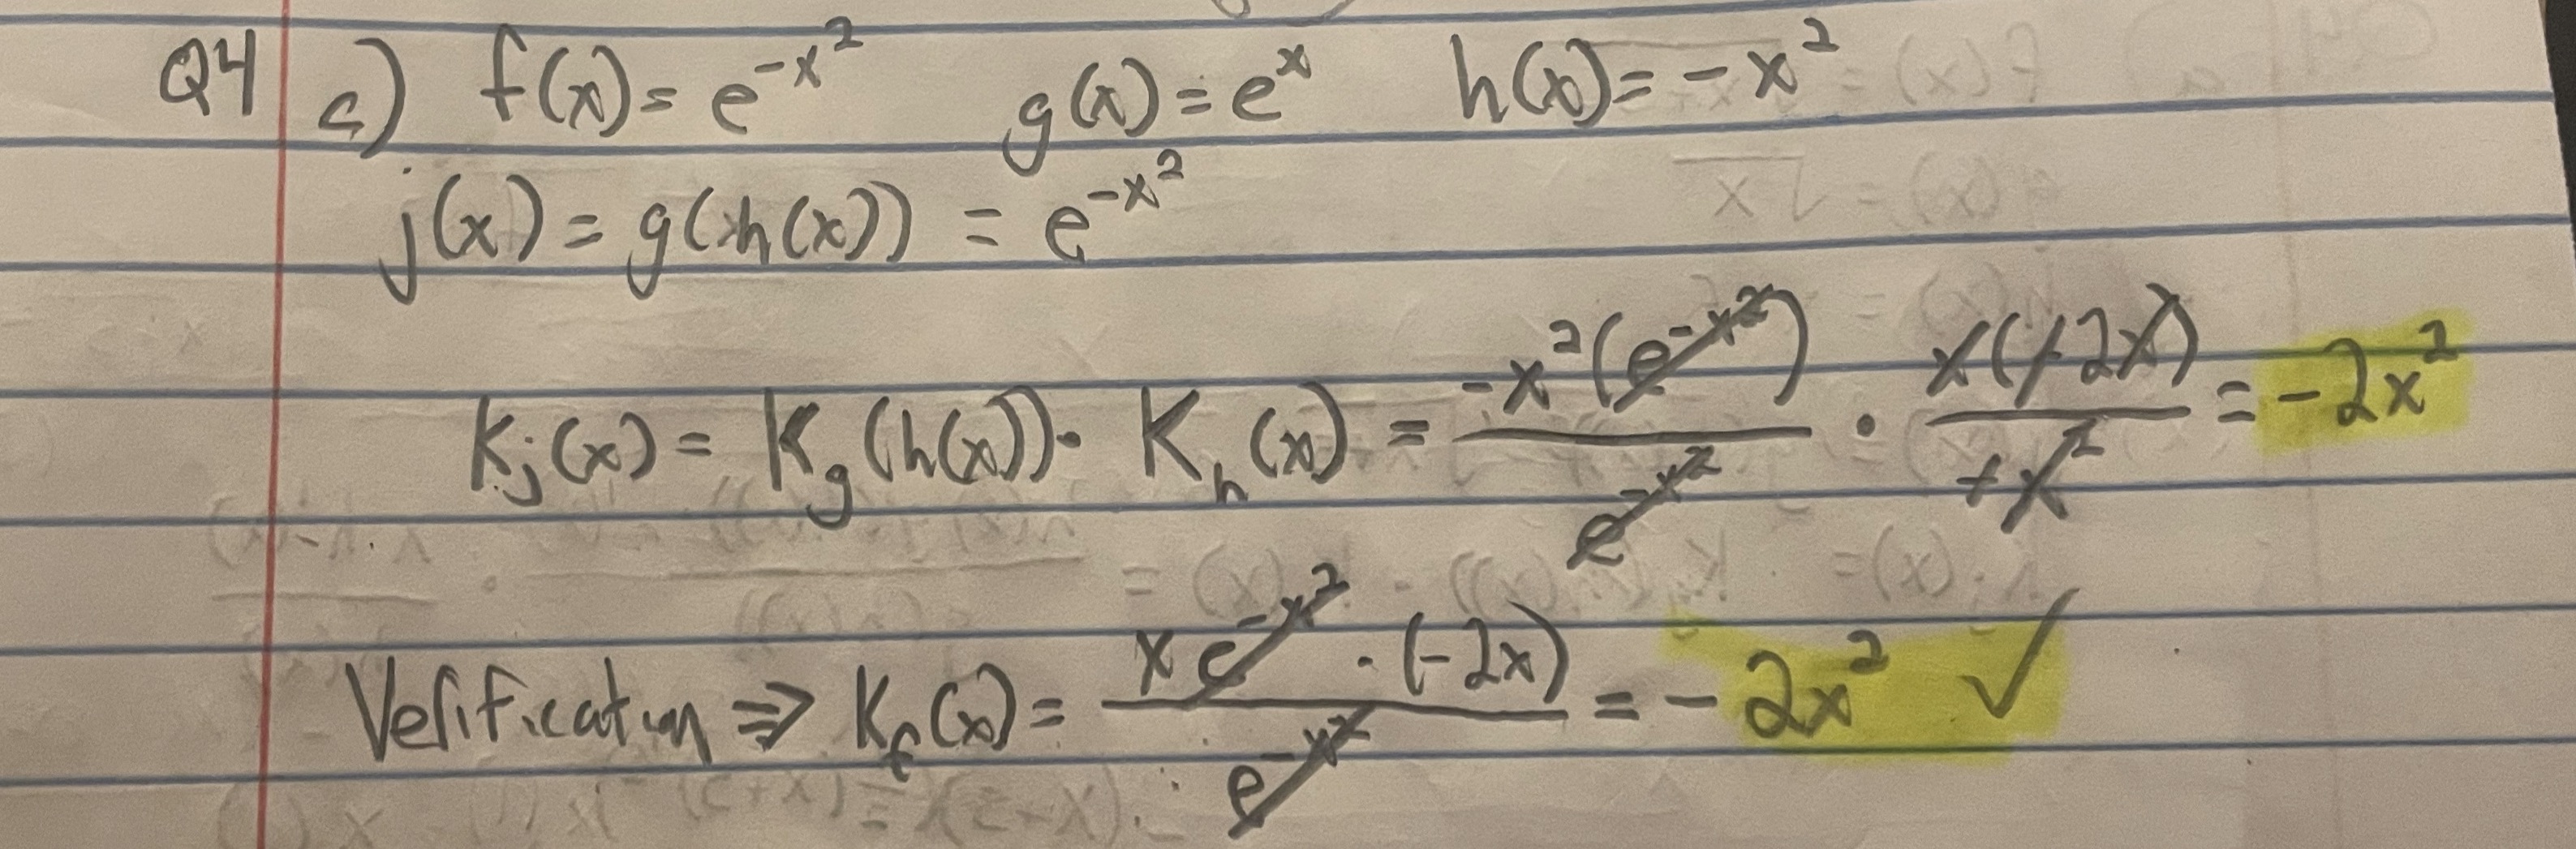 Q4 c) f(x) = e^{-x^2} g(x) = e^x h(x) = -x^2
j(x) = g(h(x)) = e^{-x^2}
K_j(x) = K_g(h(x)) · K_h(x) = \frac{-x^2(e^{-x^2})}{e^{-x^2}} · \frac{x(-2x)}{-x^2} = -2x^2
Verification ⇒ K_f(x) = \frac{x e^{-x^2} · (-2x)}{e^{-x^2}} = -2x^2 ✓